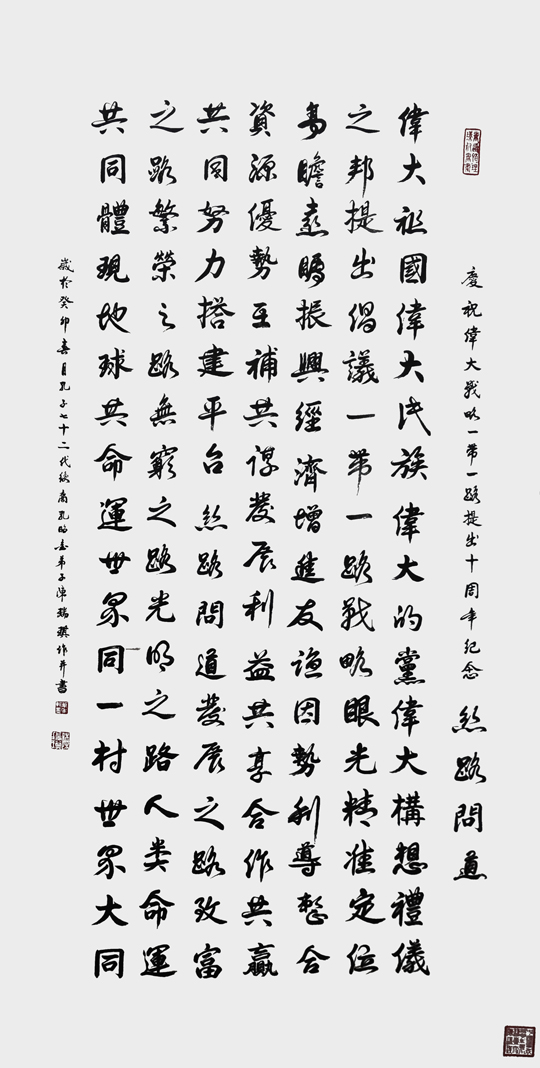 慶祝偉大戰略一帶一路提出十周年纪念 絲路問道
偉大祖國偉大民族偉大的黨偉大構想禮儀
之邦提出倡議一帶一路戰略眼光精准定位
高瞻遠矚振興經濟增進友誼因勢利導整合
資源優勢互補共謀發展利益共享合作共贏
共同努力搭建平台絲路問道發展之路致富
之路繁榮之路無窮之路光明之路人类命運
共同體現地球共命運世界同一村世界大同
歲於癸卯春月孔子七十二代後裔孔弟子陳瑞作并書